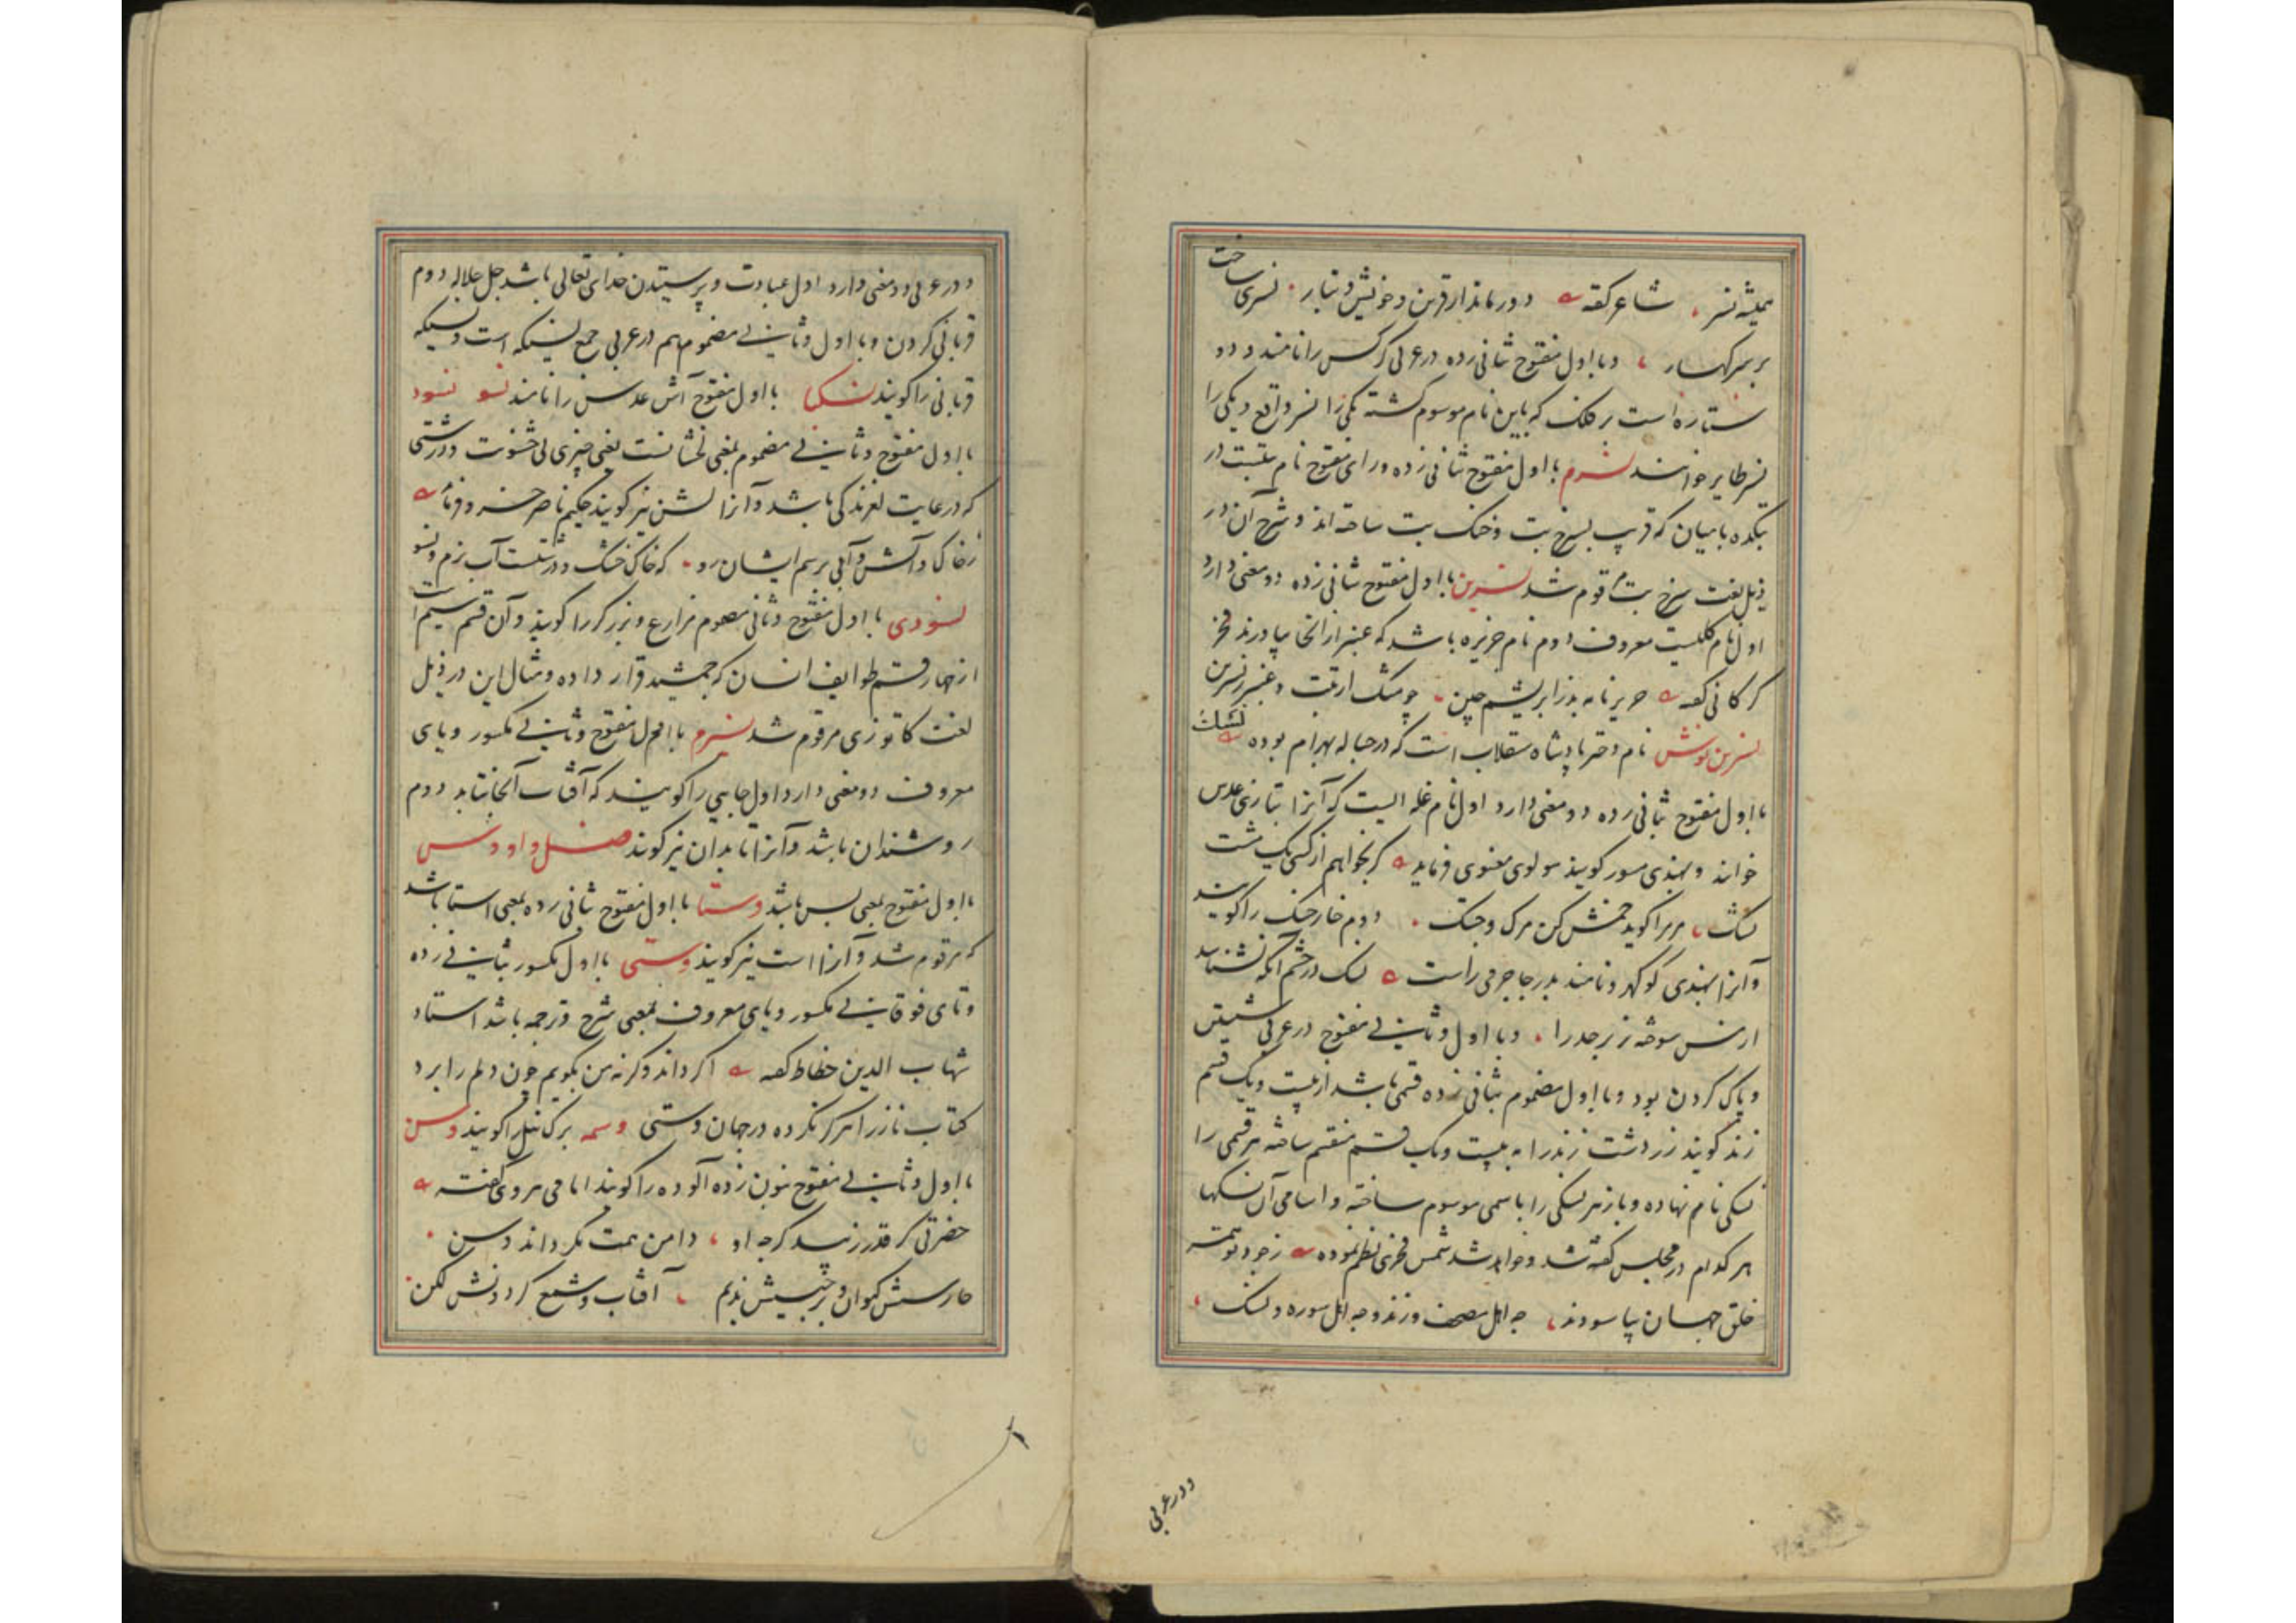 همیشه نسر شاعر گفته دور ماند از قرین و خویش و تبار نسری ساخت
بر سر کهسار و با اول مفتوح ثانی زده در عربی کرکس را نامند و دو
ستاره است بر فلک که باین نام موسوم گشته یکی را نسر واقع و یکی را
نسر طایر خوانند نسرم با اول مفتوح ثانی زده و رای مفتوح نام بتیست در
بتکده بامیان که قریب بسرخ بت و خنک بت ساخته اند و شرح آن در
ذیل لغت سرخ بت مرقوم شد نسرین با اول مفتوح ثانی زده دو معنی دارد
اول نام گلیست معروف دوم نام جزیره باشد که عنبر از آنجا بیاورند فخر
کرکانی گفته حریر نامه بد ز ابریشم چین چو مشک از تبت و عنبر ز نسرین
نسرین نوش نام دختر پادشاه سقلاب است که در حباله بهرام بوده نسک
با اول مفتوح ثانی زده دو معنی دارد اول نام غله ایست که آنرا بتازی عدس
خوانند و بهندی مسور کویند مولوی معنوی فرماید کر بخواهم از کسی یک مشت
نسک مر مرا کوید خمش کن مرک و جسک دوم خار خسک را کویند
و آنرا بهندی کوکهرو نامند بدر جاجرمی راست نسک در چشم آنکه نشناسد
و با اول و ثانی مفتوح در عربی شستن
و پاک کردن بود و با اول مضموم بثانی زده قسمی باشد از بیست و یک قسم
زند کویند زردشت زند را به بیست و یک قسم منقسم ساخته هر قسمی را
نسکی نام نهاده و باز هر نسکی را باسمی موسوم ساخته و اسامی آن نسکها
هر کدام در محلش گفته شد و خواهد شد شمس فخری نظم نموده ز جود تو همه
خلق جهان بیاسودند چه اهل مصحف و زند و چه اهل سوره و نسک
و در عربی
و در عربی دو معنی دارد اول عبادت و پرستیدن خدای تعالی باشد جل جلاله دوم
قربانی کردن و با اول و ثانی مضموم هم در عربی جمع نسیکه است و نسیکه
قربانی را کویند نسکبا با اول مفتوح آش عدس را نامند نسو نسود
با اول مفتوح و ثانی مضموم بمعنی لخشانست یعنی چیزی بی خشونت و درشتی
که در غایت لغزندگی باشد و آنرا لشن نیز کویند حکیم ناصر خسرو فرماید
ز خاک و آتش و آبی برسم ایشان رو که خاک خشک و درشتست آب نرم و نسو
نسودی با اول مفتوح و ثانی مضموم مزارع و برزکر را کویند و آن قسم سیم است
از چهار قسم طوایف انسان که جمشید قرار داده و مثال این در ذیل
لغت کاتوزی مرقوم شد نسرم با اول مفتوح و ثانی مکسور و یای
معروف دو معنی دارد اول جایی را کویند که آفتاب آنجا نتابد دوم
روشندان باشد و آنرا تابدان نیز کویند فصل واو وس
با اول مفتوح بمعنی بس باشد وستا با اول مفتوح ثانی زده بمعنی استا باشد
که مرقوم شد و آنرا است نیز کویند وستی با اول مکسور بثانی زده
و تای فوقانی مکسور و یای معروف بمعنی شرح و ترجمه باشد استاد
شهاب الدین خطاط گفته اگر داند وکرنه من بگویم چون دلم را برد
کتاب ناز را هرگز نکرده در جهان وستی وسمه برک نیل را کویند وسن
با اول و ثانی مفتوح بنون زده آلوده را کویند امامی هروی گفته
حضرتی کر قدر کرچه او دامن همت نکرداند وسن
حارسش کیوان و برجیسش ندیم آفتابش شمع و کردونش لکن